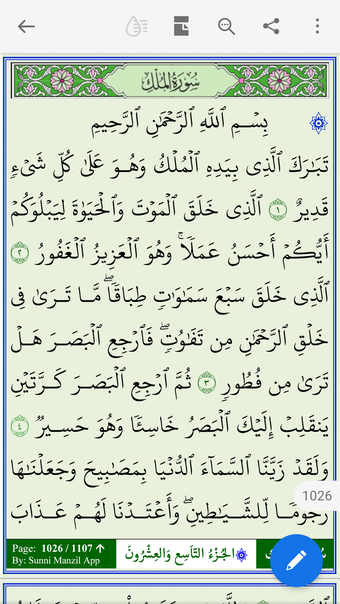 سُورَةُ الْمُلْكِ
بِسْمِ اللَّهِ الرَّحْمَٰنِ الرَّحِيمِ
تَبَارَكَ الَّذِي بِيَدِهِ الْمُلْكُ وَهُوَ عَلَىٰ كُلِّ شَيْءٍ
قَدِيرٌ ١ الَّذِي خَلَقَ الْمَوْتَ وَالْحَيَوٰةَ لِيَبْلُوَكُمْ
أَيُّكُمْ أَحْسَنُ عَمَلًا ۚ وَهُوَ الْعَزِيزُ الْغَفُورُ ٢
الَّذِي خَلَقَ سَبْعَ سَمَٰوَٰتٍ طِبَاقًا ۖ مَّا تَرَىٰ فِي
خَلْقِ الرَّحْمَٰنِ مِن تَفَٰوُتٍ ۖ فَارْجِعِ الْبَصَرَ هَلْ
تَرَىٰ مِن فُطُورٍ ٣ ثُمَّ ارْجِعِ الْبَصَرَ كَرَّتَيْنِ
يَنقَلِبْ إِلَيْكَ الْبَصَرُ خَاسِئًا وَهُوَ حَسِيرٌ ٤
وَلَقَدْ زَيَّنَّا السَّمَاءَ الدُّنْيَا بِمَصَٰبِيحَ وَجَعَلْنَٰهَا
1026
رُجُومًا لِّلشَّيَٰطِينِ ۖ وَأَعْتَدْنَا لَهُمْ عَذَابَ
Page: 1026 / 1107 ↑
By: Sunni Manzil App
الجُزءُ التَّاسِع وَالعِشْرُونَ